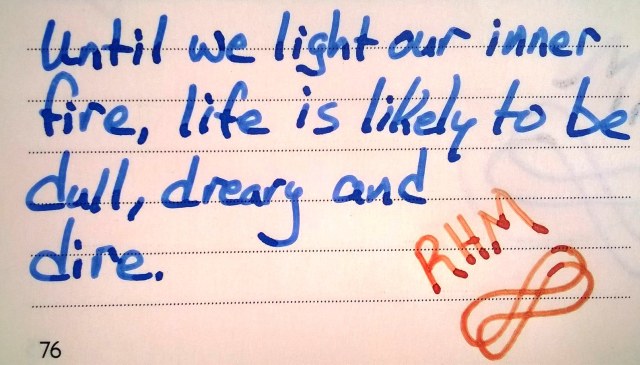 Until we light our inner
fire, life is likely to be
dull, dreary and
dire.
RHM
76